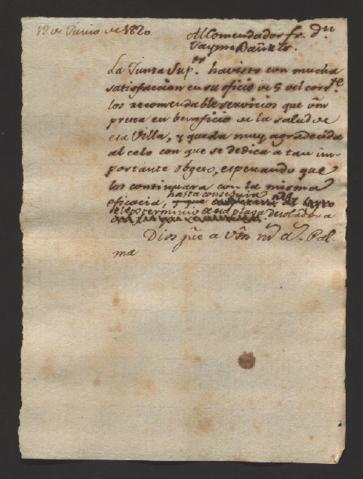 12 de Junio de 1820
Al Comendador fr. dn
Jayme Bauzá
La Junta Supor. ha visto con mucha
satisfaccion en su oficio de 5 del corrte
los recomendable servicios que vm
presta en beneficio de la salud de
esa Villa, y queda muy agradecida
al celo con que se dedica a tan im-
portante objeto, esperando que
los continuará con la misma
hasta conseguir
eficacia,
el exterminio de esa plaga desoladora
Dios gue a vm ms as. Pal
ma